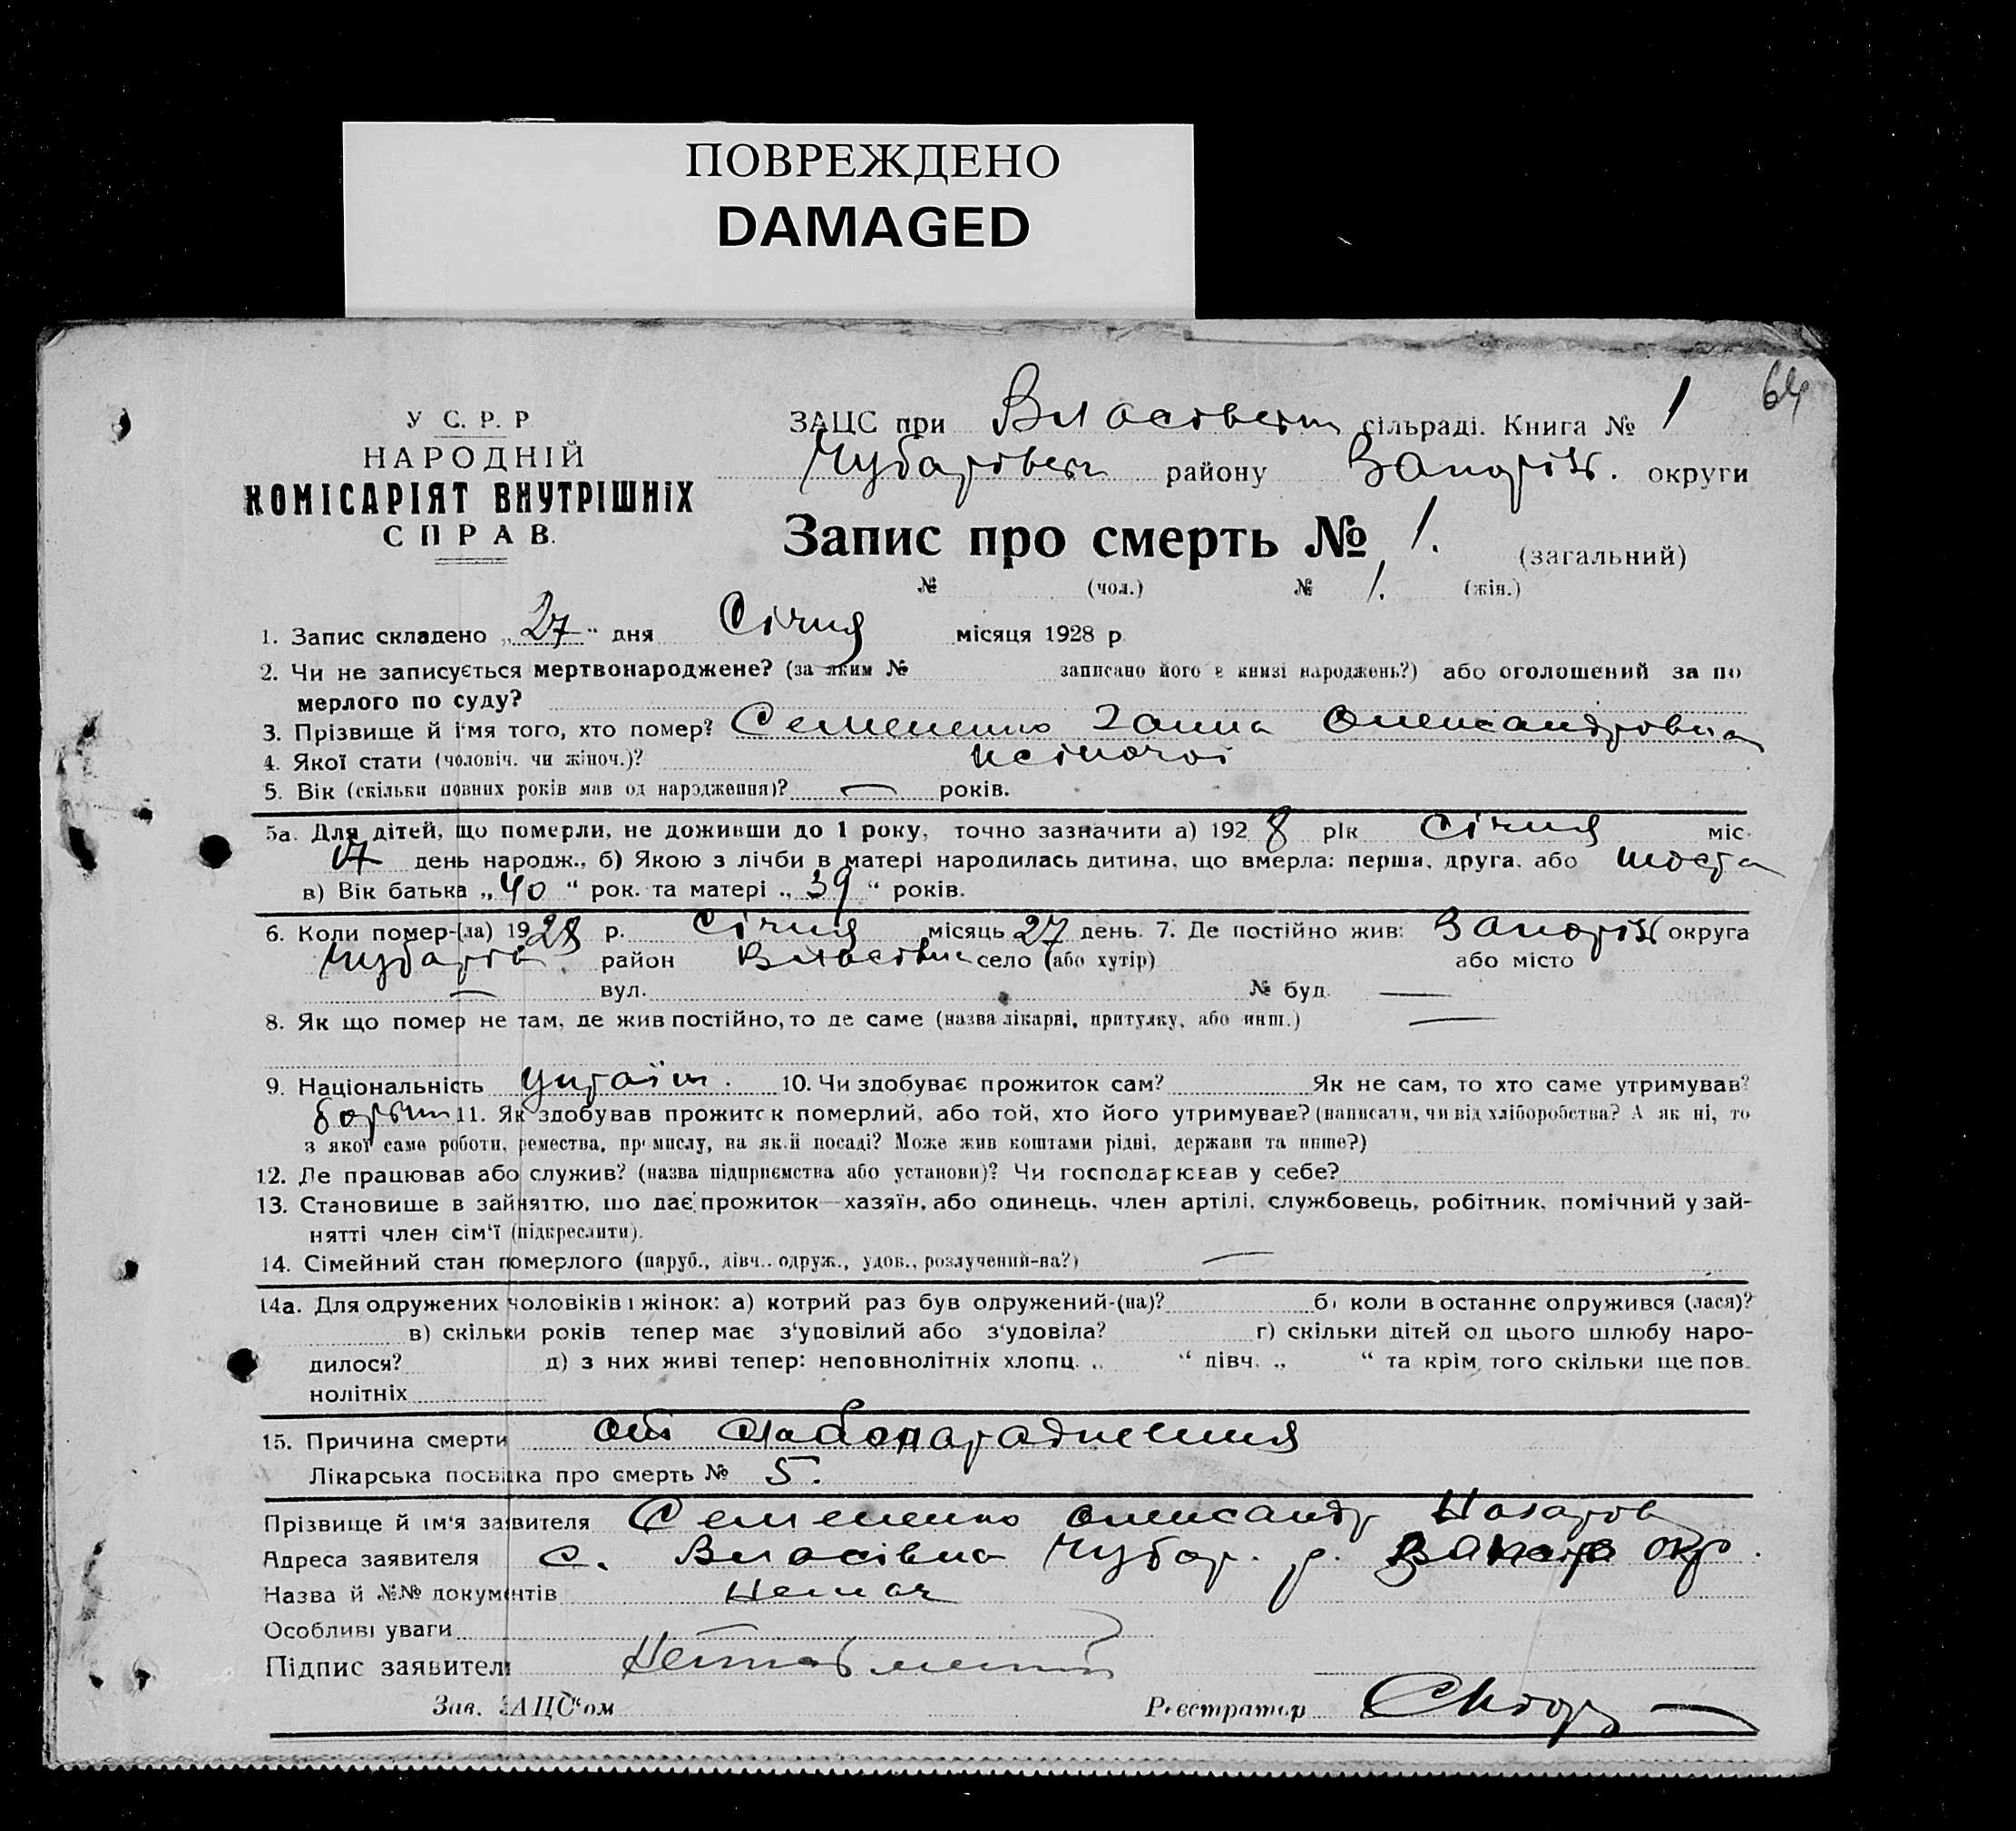 ПОВРЕЖДЕНО
DAMAGED
64
У С. Р. Р
НАРОДНІЙ
КОМІСАРІЯТ ВНУТРІШНІХ
СПРАВ.
ЗАЦС при Власівськ сільраді. Книга № 1
Чубарівськ району Запоріж. округи
Запис про смерть № 1. (загальний)
№ (чол.) № 1. (жін.)
1. Запис складено „27“ дня Січня місяця 1928 р
2. Чи не записується мертвонароджене? (за яким № записано його в книзі народжень?) або оголошений за по
мерлого по суду?
3. Прізвище й ім'я того, хто помер? Семененко Ганна Олександровна
4. Якої стати (чоловіч. чи жіноч.)? жіночої
5. Вік (скільки повних років мав од народження)? — років.
5а. Для дітей, що померли, не доживши до 1 року, точно зазначити а) 1928 рік Січня міс.
17 день народж., б) Якою з лічби в матері народилась дитина, що вмерла: перша, друга, або шоста
в) Вік батька „40“ рок. та матері „39“ років.
6. Коли помер-(ла) 1928 р. Січня місяць 27 день. 7. Де постійно жив: Запоріж округа
Чубарів район Власівка село (або хутір) або місто
— вул. № буд. —
8. Як що помер не там, де жив постійно, то де саме (назва лікарні, притулку, або инш.) —
9. Національність україн. 10. Чи здобуває прожиток сам? Як не сам, то хто саме утримував?
батьки 11. Як здобував прожиток померлий, або той, хто його утримував? (написати, чи від хліборобства? А як ні, то
з якої саме роботи, ремества, промислу, на якій посаді? Може жив коштами рідні, держави та инше?)
12. Де працював або служив? (назва підприємства або установи)? Чи господарював у себе?
13. Становище в зайняттю, що дає прожиток—хазяїн, або одинець, член артілі, службовець, робітник, помічний у зай-
нятті член сім'ї (підкреслити).
14. Сімейний стан померлого (паруб., дівч., одруж., удов., розлучений-на?) —
14а. Для одружених чоловіків і жінок: а) котрий раз був одружений-(на)? б) коли в останнє одружився (лася)?
в) скільки років тепер має з'удовілий або з'удовіла? г) скільки дітей од цього шлюбу наро-
дилося? д) з них живі тепер: неповнолітніх хлопц. „ “ дівч. „ “ та крім того скільки ще пов.
нолітніх
15. Причина смерти от слабонараднення
Лікарська посвідка про смерть № 5.
Прізвище й ім'я заявителя Семененко Олександр Назаров
Адреса заявителя с. Власівка Чубар. р. Запор окр.
Назва й №№ документів Немає
Особливі уваги
Підпис заявителя
Зав. ЗАЦС'ом Реєстратор